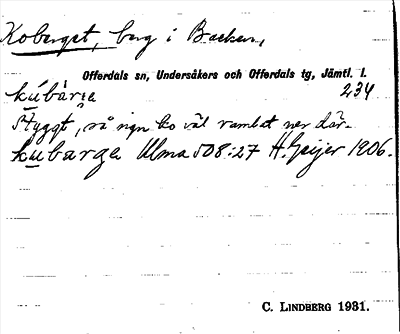 Koberget, berg i Backen,
Offerdals sn, Undersåkers och Offerdals tg, Jämtl. l.
234
kúbàrjɛ
styggt, så ngn ko väl ramlat ner där.
kubarge Ulma 508:27 A. Geijer 1906.
C. LINDBERG 1931.